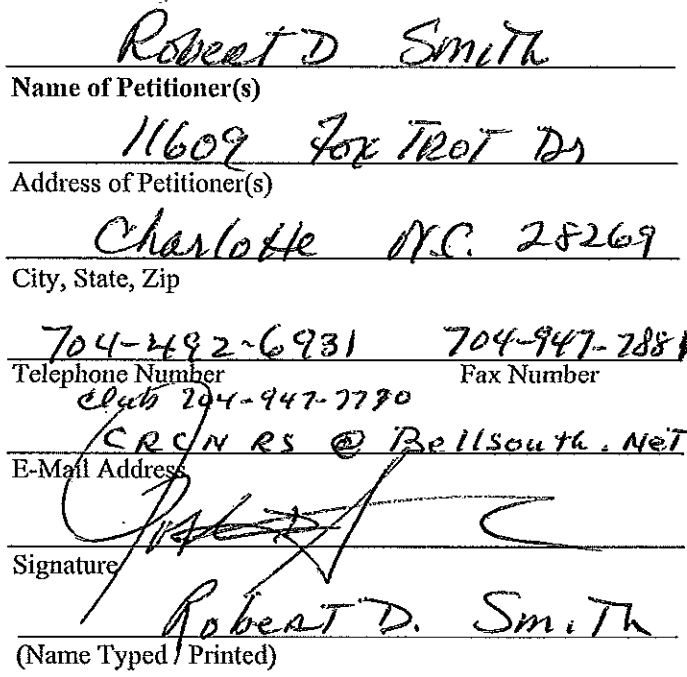 Robert D Smith
Name of Petitioner(s)
11609 Fox TROT Dr
Address of Petitioner(s)
Charlotte N.C. 28269
City, State, Zip
704-492-6931 704-947-7881
Telephone Number Fax Number
Club 704-947-7790
CRCN RS @ Bellsouth.NeT
E-Mail Address
Signature
RobeRT D. Smith
(Name Typed / Printed)